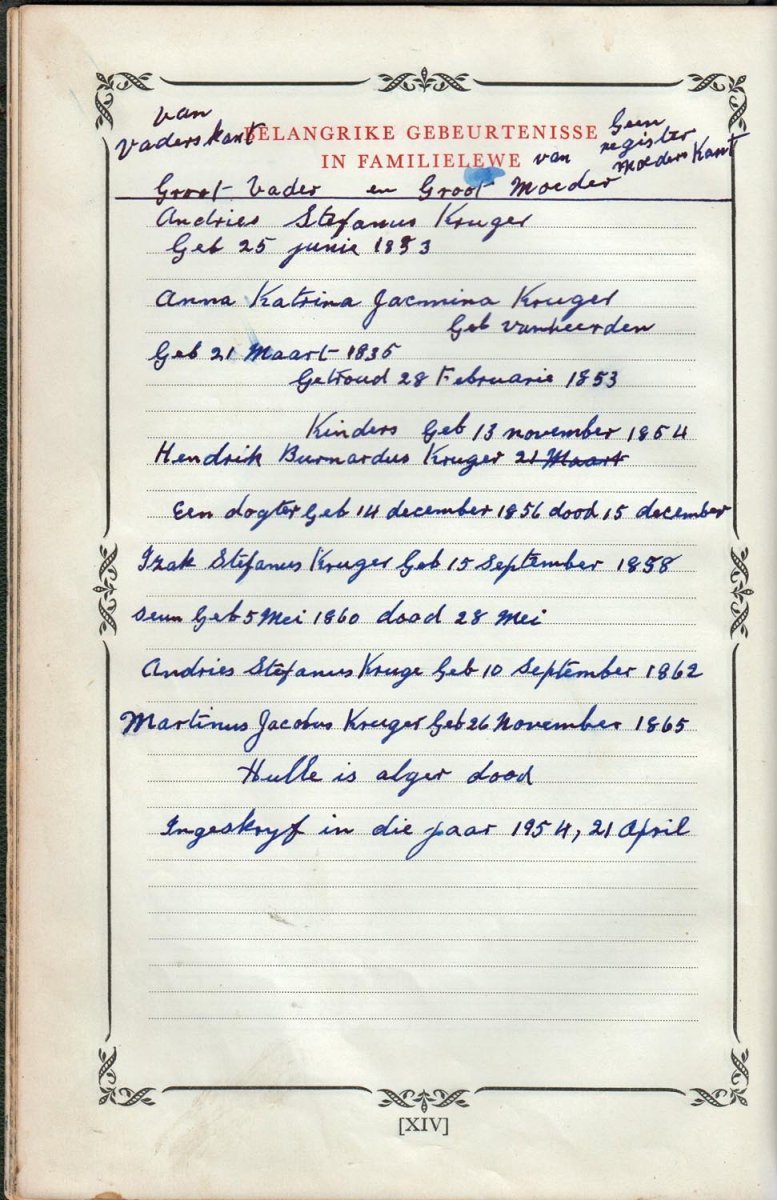 van
vaderskant
BELANGRIKE GEBEURTENISSE
IN FAMILIELEWE
van
Geen
register
moeders kant
Groot Vader en Groot Moeder
Andries Stefanus Kruger
Geb 25 junie 1833
Anna Katrina Jacmina Kruger
Geb vanheerden
Geb 21 Maart 1835
Getroud 28 Februarie 1853
Kinders Geb 13 november 1854
Hendrik Burnardus Kruger 21 Maart
Een dogter Geb 14 december 1856 dood 15 december
Izak Stefanus Kruger Geb 15 September 1858
seun Geb 5 Mei 1860 dood 28 Mei
Andries Stefanus Kruge Geb 10 September 1862
Martinus Jacobus Kruger Geb 26 November 1865
Hulle is alger dood
Ingeskryf in die jaar 1954, 21 April
[XIV]